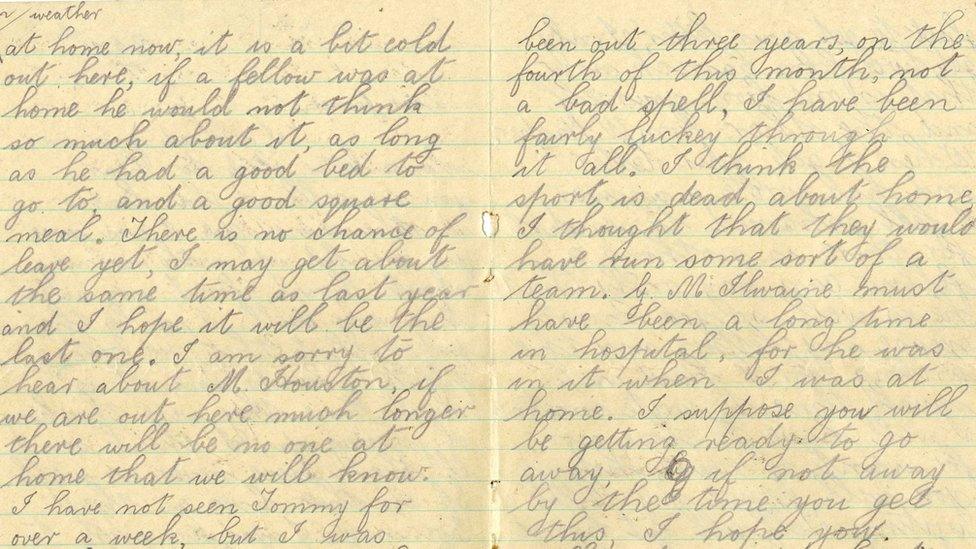 / weather
at home now, it is a bit cold
out here, if a fellow was at
home he would not think
so much about it, as long
as he had a good bed to
go to, and a good square
meal. There is no chance of
leave yet, I may get about
the same time as last year
and I hope it will be the
last one. I am sorry to
hear about M Houston, if
we are out here much longer
there will be no one at
home that we will know.
I have not seen Tommy for
over a week, but I was
been out three years, on the
fourth of this month, not
a bad spell, I have been
fairly luckey through
it all. I think the
sport is dead about home,
I thought that they would
have run some sort of a
team. G McIlwaine must
have been a long time
in hospital, for he was
in it when I was at
home. I suppose you will
be getting ready to go
away, if not away
by the time you get
this, I hope you